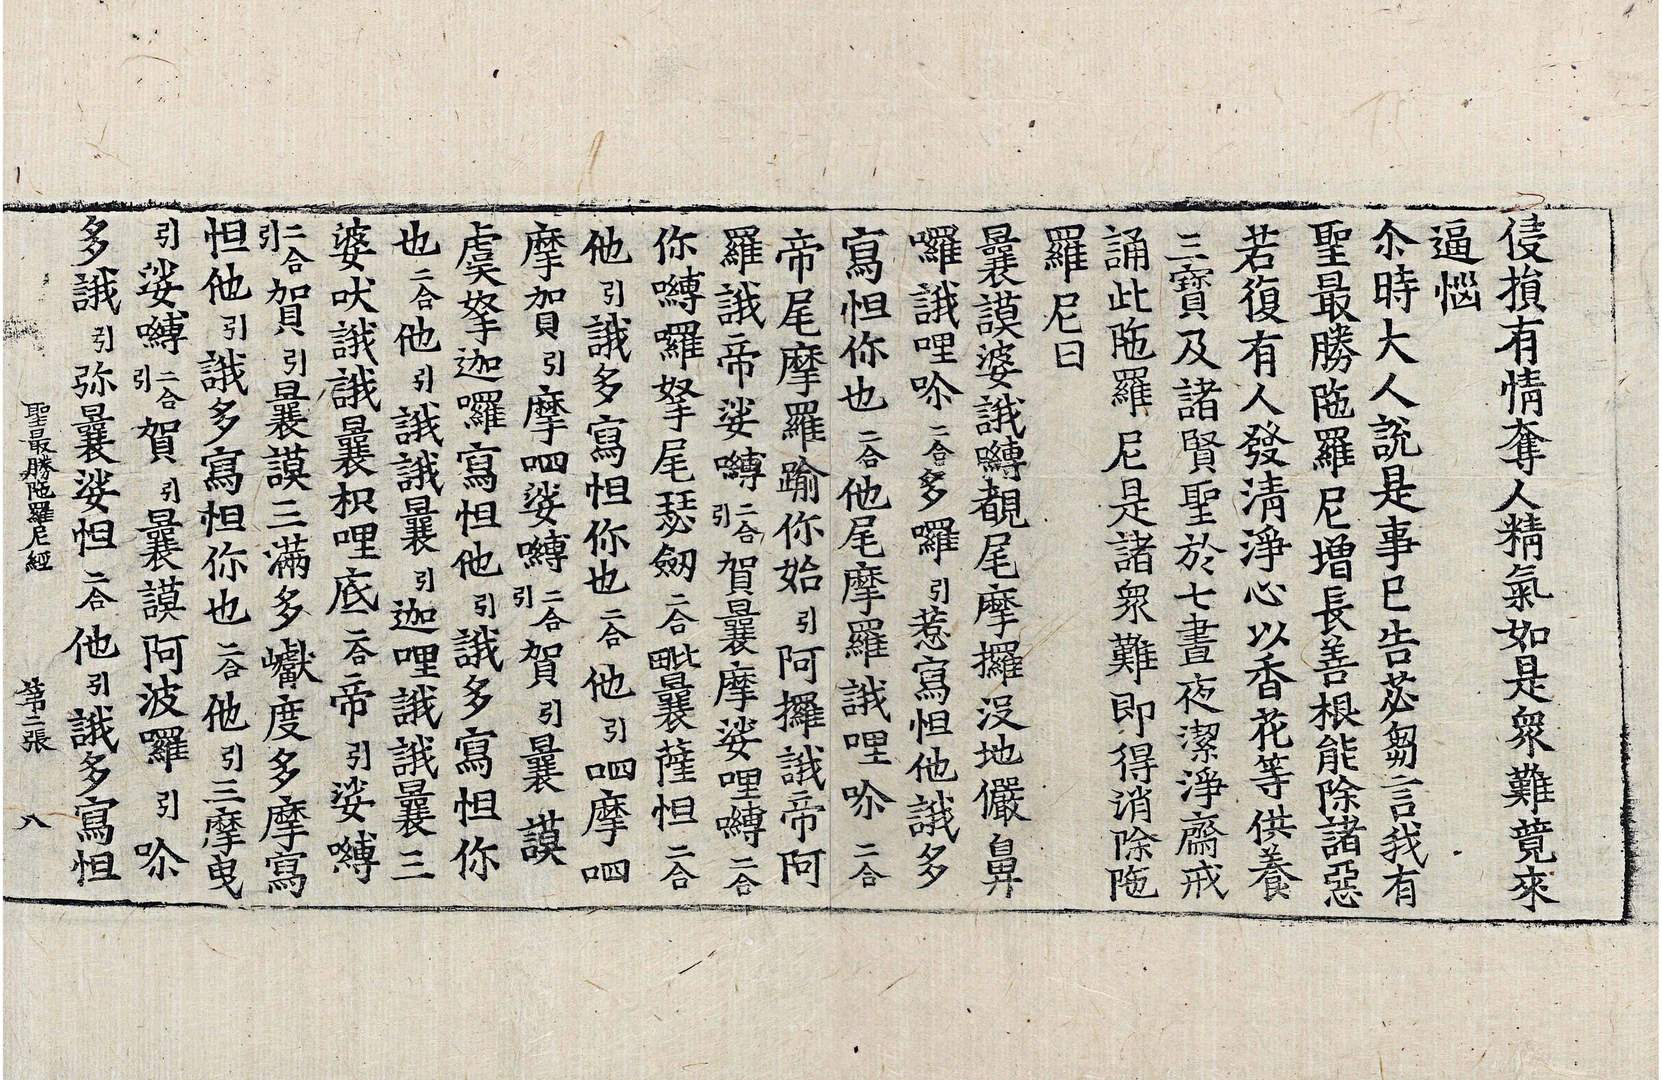 侵損有情奪人精氣如是衆難競來
逼惱
尒時大人說是事已告苾芻言我有
聖最勝陁羅尼增長善根能除諸惡
若復有人發淸淨心以香花等供養
三寶及諸賢聖於七晝夜潔淨齋戒
誦此陁羅尼是諸衆難即得消除陁
羅尼曰
曩謨婆誐嚩覩尾摩攞没地儼鼻
囉誐哩吤二合多囉引惹寫怛他誐多
寫怛你也二合他尾摩羅誐哩吤二合
帝尾摩羅踰你始引阿攞誐帝阿
羅誐帝娑嚩二合引賀曩摩娑哩嚩二合
你嚩囉拏尾瑟劒二合毗曩薩怛二合
他引誐多寫怛你也二合他引呬摩呬
摩賀引摩呬娑嚩二合引賀引曩謨
虞拏迦囉寫怛他引誐多寫怛你
也二合他引誐誐曩引迦哩誐誐曩三
婆吠誐誐曩枳哩底二合帝引娑嚩
二合引賀引曩謨三滿多巘度多摩寫
怛他引誐多寫怛你也二合他引三摩曳
引娑嚩二合引賀引曩謨阿波囉引吤
多誐引弥曩娑怛二合他引誐多寫怛
聖最勝陁羅尼經 第二張 八